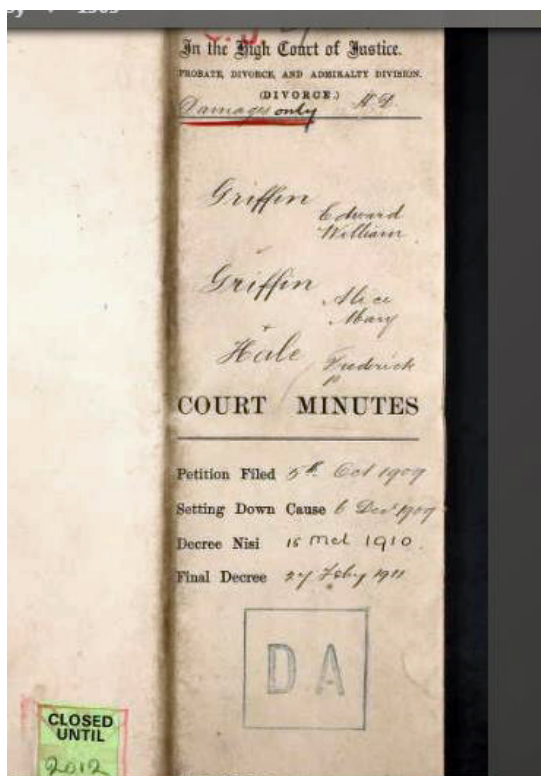 1909
In the High Court of Justice.
PROBATE, DIVORCE, AND ADMIRALTY DIVISION.
(DIVORCE.)
Damages only H.D.
Griffin Edward
William
Griffin Alice
Mary
Hale Frederick
COURT MINUTES
Petition Filed 5th Oct 1909
Setting Down Cause 6 Dec 1909
Decree Nisi 15 Mch 1910.
Final Decree 27 Feby 1911
D A
CLOSED
UNTIL
2012